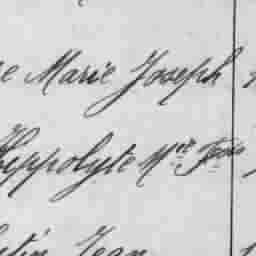 e Marie Joseph
Hyppolyte Mie Fçois
tin Jean